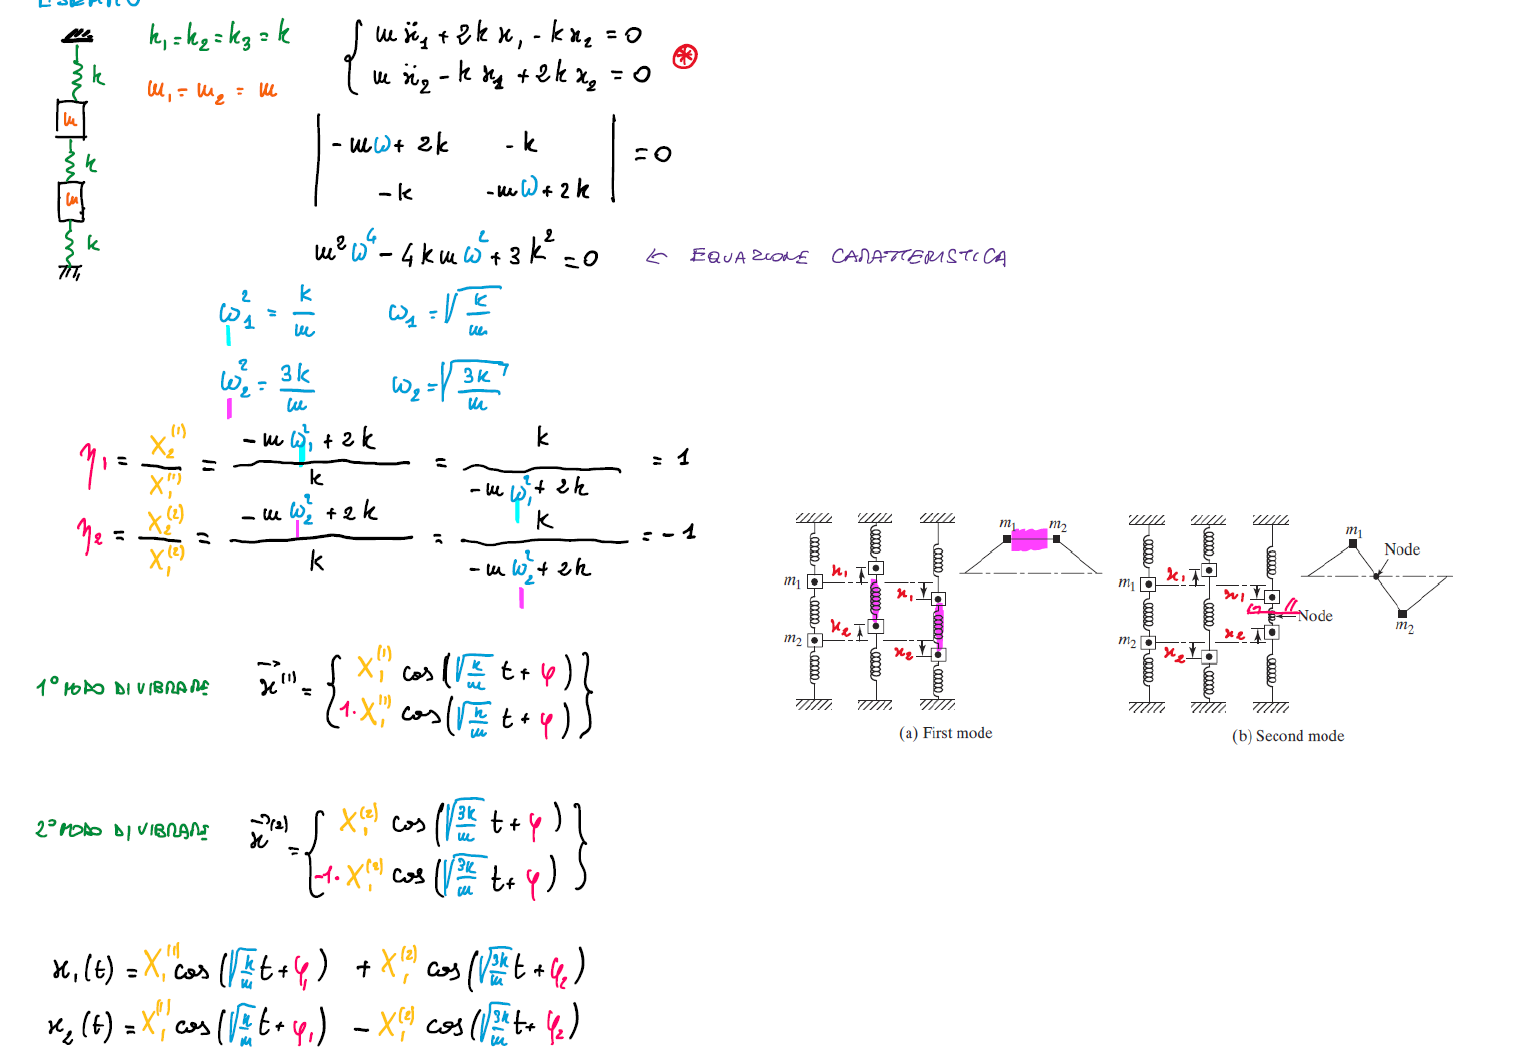 k₁ = k₂ = k₃ = k
m₁ = m₂ = m
k
m
k
m
k
{ m ẍ₁ + 2k x₁ - k x₂ = 0
m ẍ₂ - k x₁ + 2k x₂ = 0 ⊛
| -mω + 2k   -k |
| -k   -mω + 2k | = 0
m²ω⁴ - 4kmω² + 3k² = 0 ← EQUAZIONE CARATTERISTICA
ω₁² = k/m   ω₁ = √(k/m)
ω₂² = 3k/m   ω₂ = √(3k/m)
η₁ = X₂⁽¹⁾/X₁⁽¹⁾ = (-mω₁² + 2k)/k = k/(-mω₁² + 2k) = 1
η₂ = X₂⁽²⁾/X₁⁽²⁾ = (-mω₂² + 2k)/k = k/(-mω₂² + 2k) = -1
1° MODO DI VIBRARE   x⃗⁽¹⁾ = { X₁⁽¹⁾ cos(√(k/m) t + φ)
1·X₁⁽¹⁾ cos(√(k/m) t + φ) }
2° MODO DI VIBRARE   x⃗⁽²⁾ = { X₁⁽²⁾ cos(√(3k/m) t + φ)
-1·X₁⁽²⁾ cos(√(3k/m) t + φ) }
x₁(t) = X₁⁽¹⁾ cos(√(k/m) t + φ₁) + X₁⁽²⁾ cos(√(3k/m) t + φ₂)
x₂(t) = X₁⁽¹⁾ cos(√(k/m) t + φ₁) - X₁⁽²⁾ cos(√(3k/m) t + φ₂)
m₁ m₂
m₁ x₁ x₁
m₂ x₂ x₂
(a) First mode
m₁
Node
m₁ x₁ x₁
Node
m₂ x₂ x₂
m₂
(b) Second mode